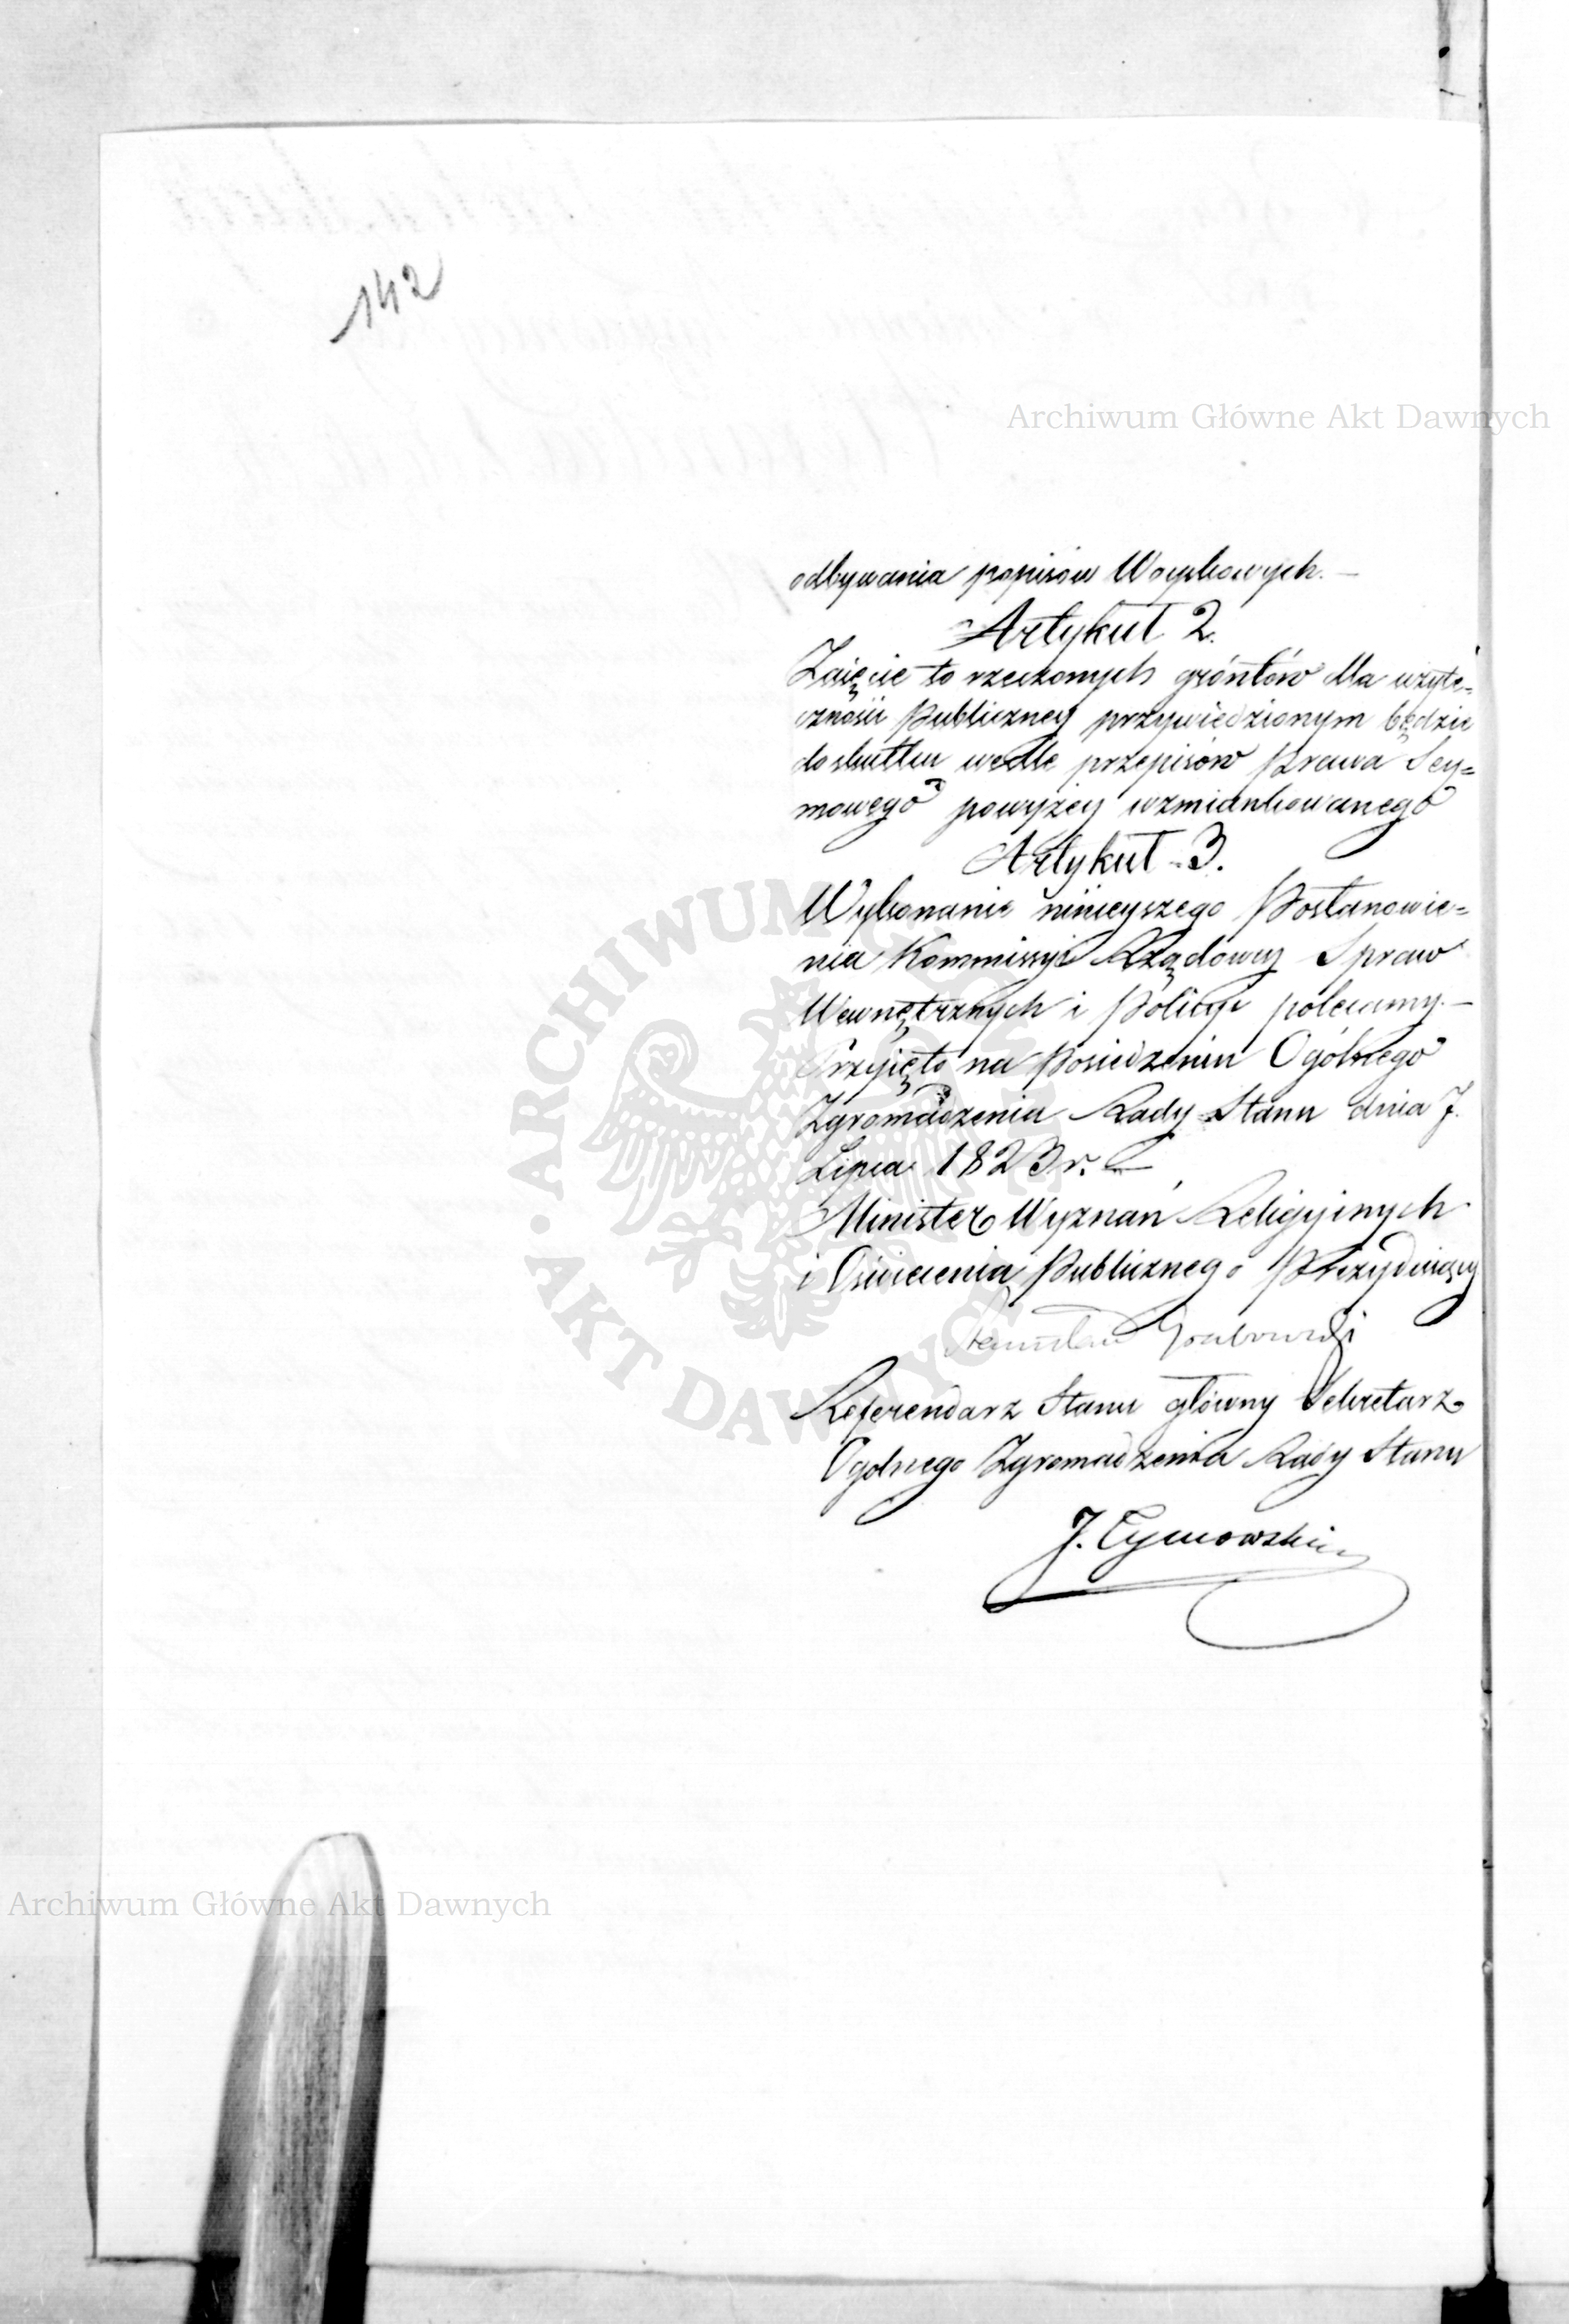 142
Archiwum Główne Akt Dawnych
odbywania popisów Woyskowych. —
Artykuł 2.
Zaięcie to rzeczonych gróntów dla użyte=
czności Publiczney przywiedzionym będzie
do skutku wedle przepisów Prawa Sey=
mowego powyżey wzmiankowanego
Artykuł 3.
Wykonanie ninieyszego Postanowie=
nia Kommissyi Rządowey Spraw
Wewnętrznych i Policyi polecamy. —
Przyięto na Posiedzeniu Ogólnego
Zgromadzenia Rady Stanu dnia 7.
Lipca 1823 r. —
Minister Wyznań Religyinych
i Oświecenia Publicznego Prezyduiący
Stanisław Grabowski
Referendarz Stanu główny Sekretarz
Ogolnego Zgromadzenia Rady Stanu
J. Tymowski
ARCHIWUM GŁÓWNE AKT DAWNYCH
Archiwum Główne Akt Dawnych